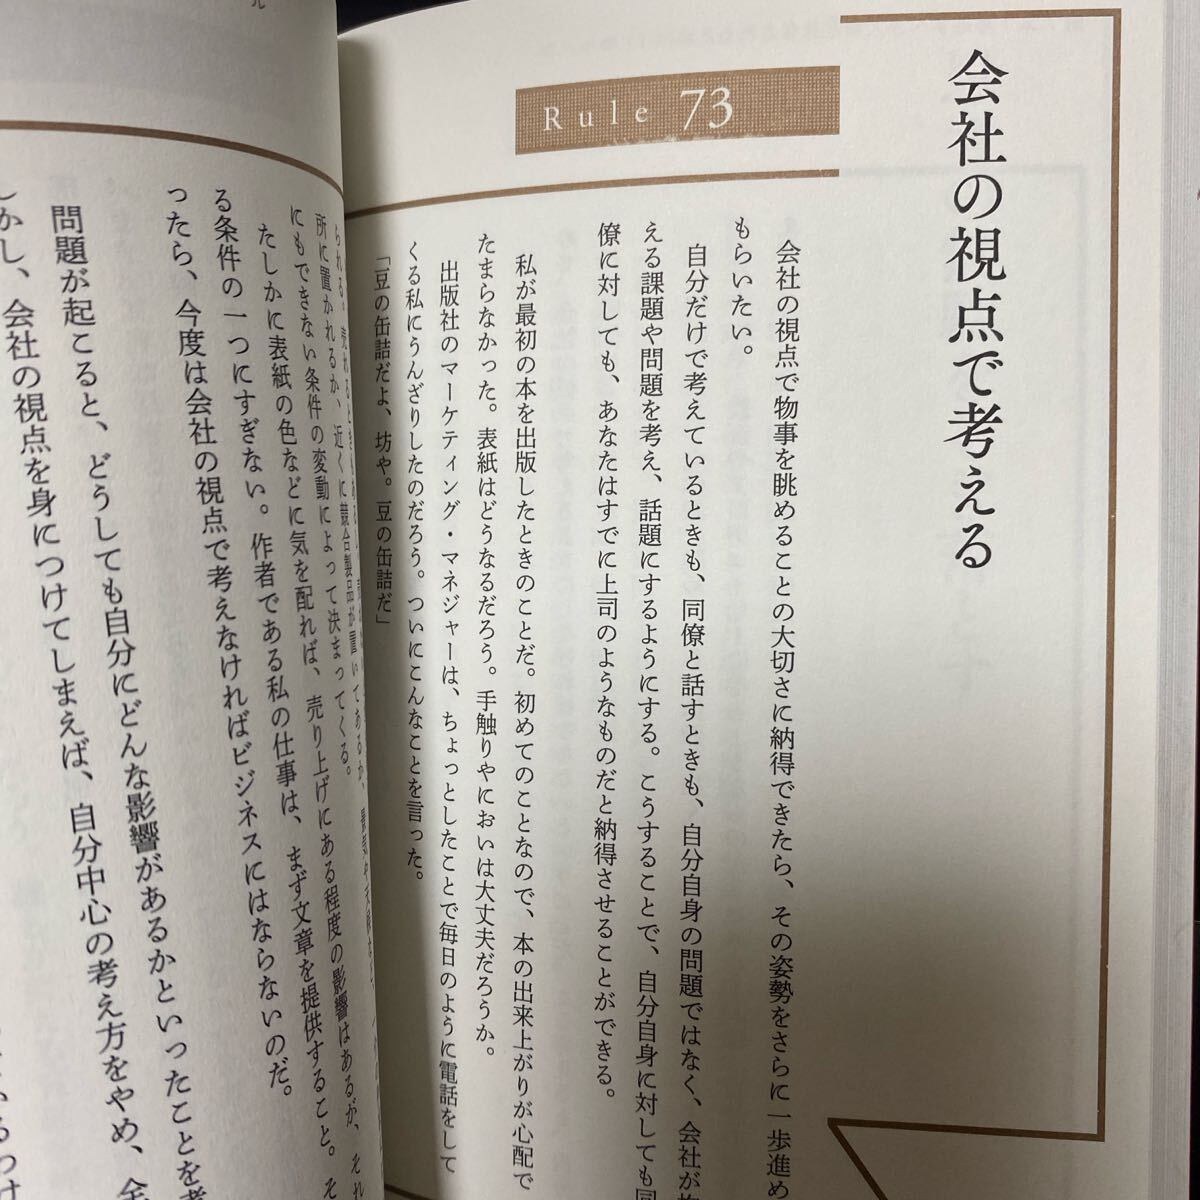 Rule 73
会社の視点で考える
会社の視点で物事を眺めることの大切さに納得できたら、その姿勢をさらに一歩進め
もらいたい。
自分だけで考えているときも、同僚と話すときも、自分自身の問題ではなく、会社が
える課題や問題を考え、話題にするようにする。こうすることで、自分自身に対しても同
僚に対しても、あなたはすでに上司のようなものだと納得させることができる。
私が最初の本を出版したときのことだ。初めてのことなので、本の出来上がりが心配で
たまらなかった。表紙はどうなるだろう。手触りやにおいは大丈夫だろうか。
出版社のマーケティング・マネジャーは、ちょっとしたことで毎日のように電話をして
くる私にうんざりしたのだろう。ついにこんなことを言った。
「豆の缶詰だよ、坊や。豆の缶詰だ」
られる。売れるときもあるし、
所に置かれるか、近くに競合製品が置いてあるか、景気や天候など、
にもできない条件の変動によって決まってくる。
たしかに表紙の色などに気を配れば、売り上げにある程度の影響はあるが、それ
る条件の一つにすぎない。作者である私の仕事は、まず文章を提供すること。そ
ったら、今度は会社の視点で考えなければビジネスにはならないのだ。
問題が起こると、どうしても自分にどんな影響があるかといったことを考
しかし、会社の視点を身につけてしまえば、自分中心の考え方をやめ、全